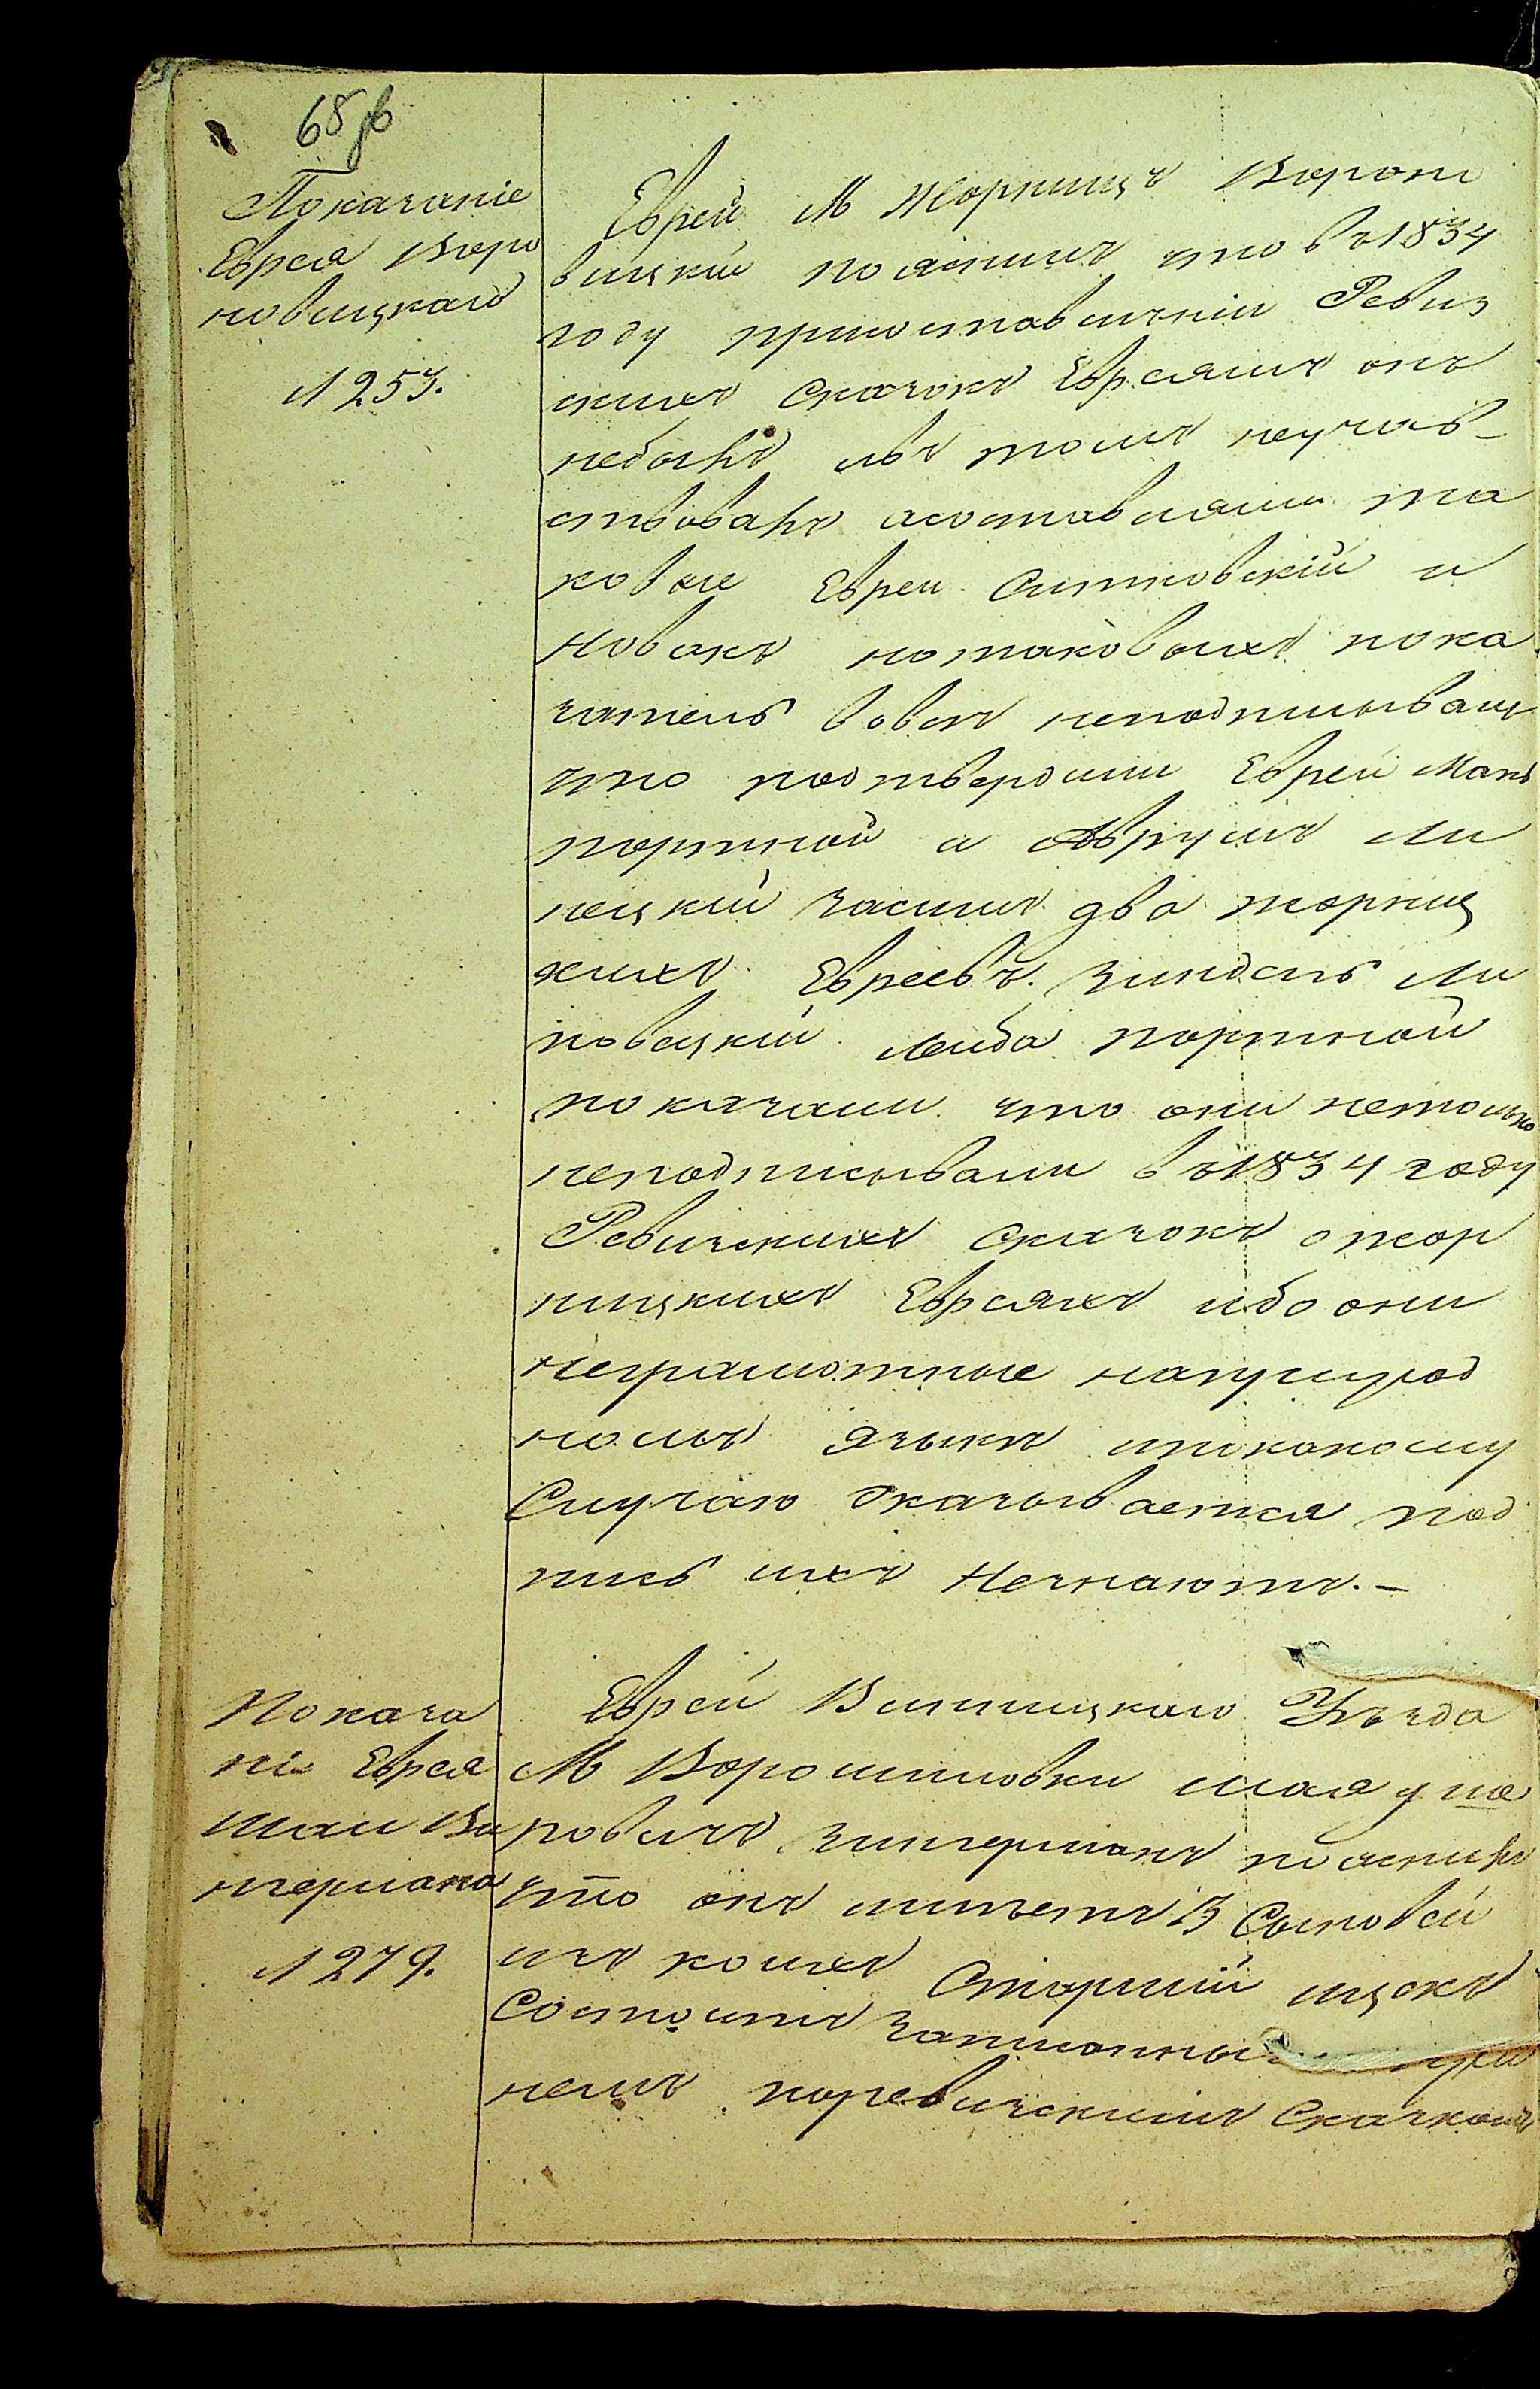 68 об
Показаніе
Еврея Воро
новицкаго
1253.
Еврей М Жорнищъ Ворони
вицкій пояснилъ что въ 1834
году присоставленіи Ревиз
скихъ Сказокъ Евреямъ онъ
небылъ ивъ томъ неучав-
ствовалъ асоставляли та
ковые Евреи Ситковскій и
Новакъ нотаковыхъ пока
затель вовсе неподписывалъ
что подтвердили Еврей Манъ
портной и Аврумъ Ли
нецкій засимъ два жорнищ
кихъ Евреевъ Зиндель Ли
повецкій Лейба портной
показали что они нетолько
неподписывали въ 1834 году
Ревизскихъ Сказокъ ожор
нищкихъ Евреяхъ ибо они
неграмотные
номъ языкъ ипокакому
Случаю Оказывается под
пись ихъ Незнаютъ.-
Показа
ніе Еврея
Шаи
нтермана
1279.
Еврей Винницкаго Уѣзда
М Ворошиловки Шая
ровичъ Зинтерманъ пояснилъ
что онъ имѣетъ 3 Сыновей
изъ коихъ Старшій Ицекъ
Состоитъ
немъ поревизскимъ Сказкамъ